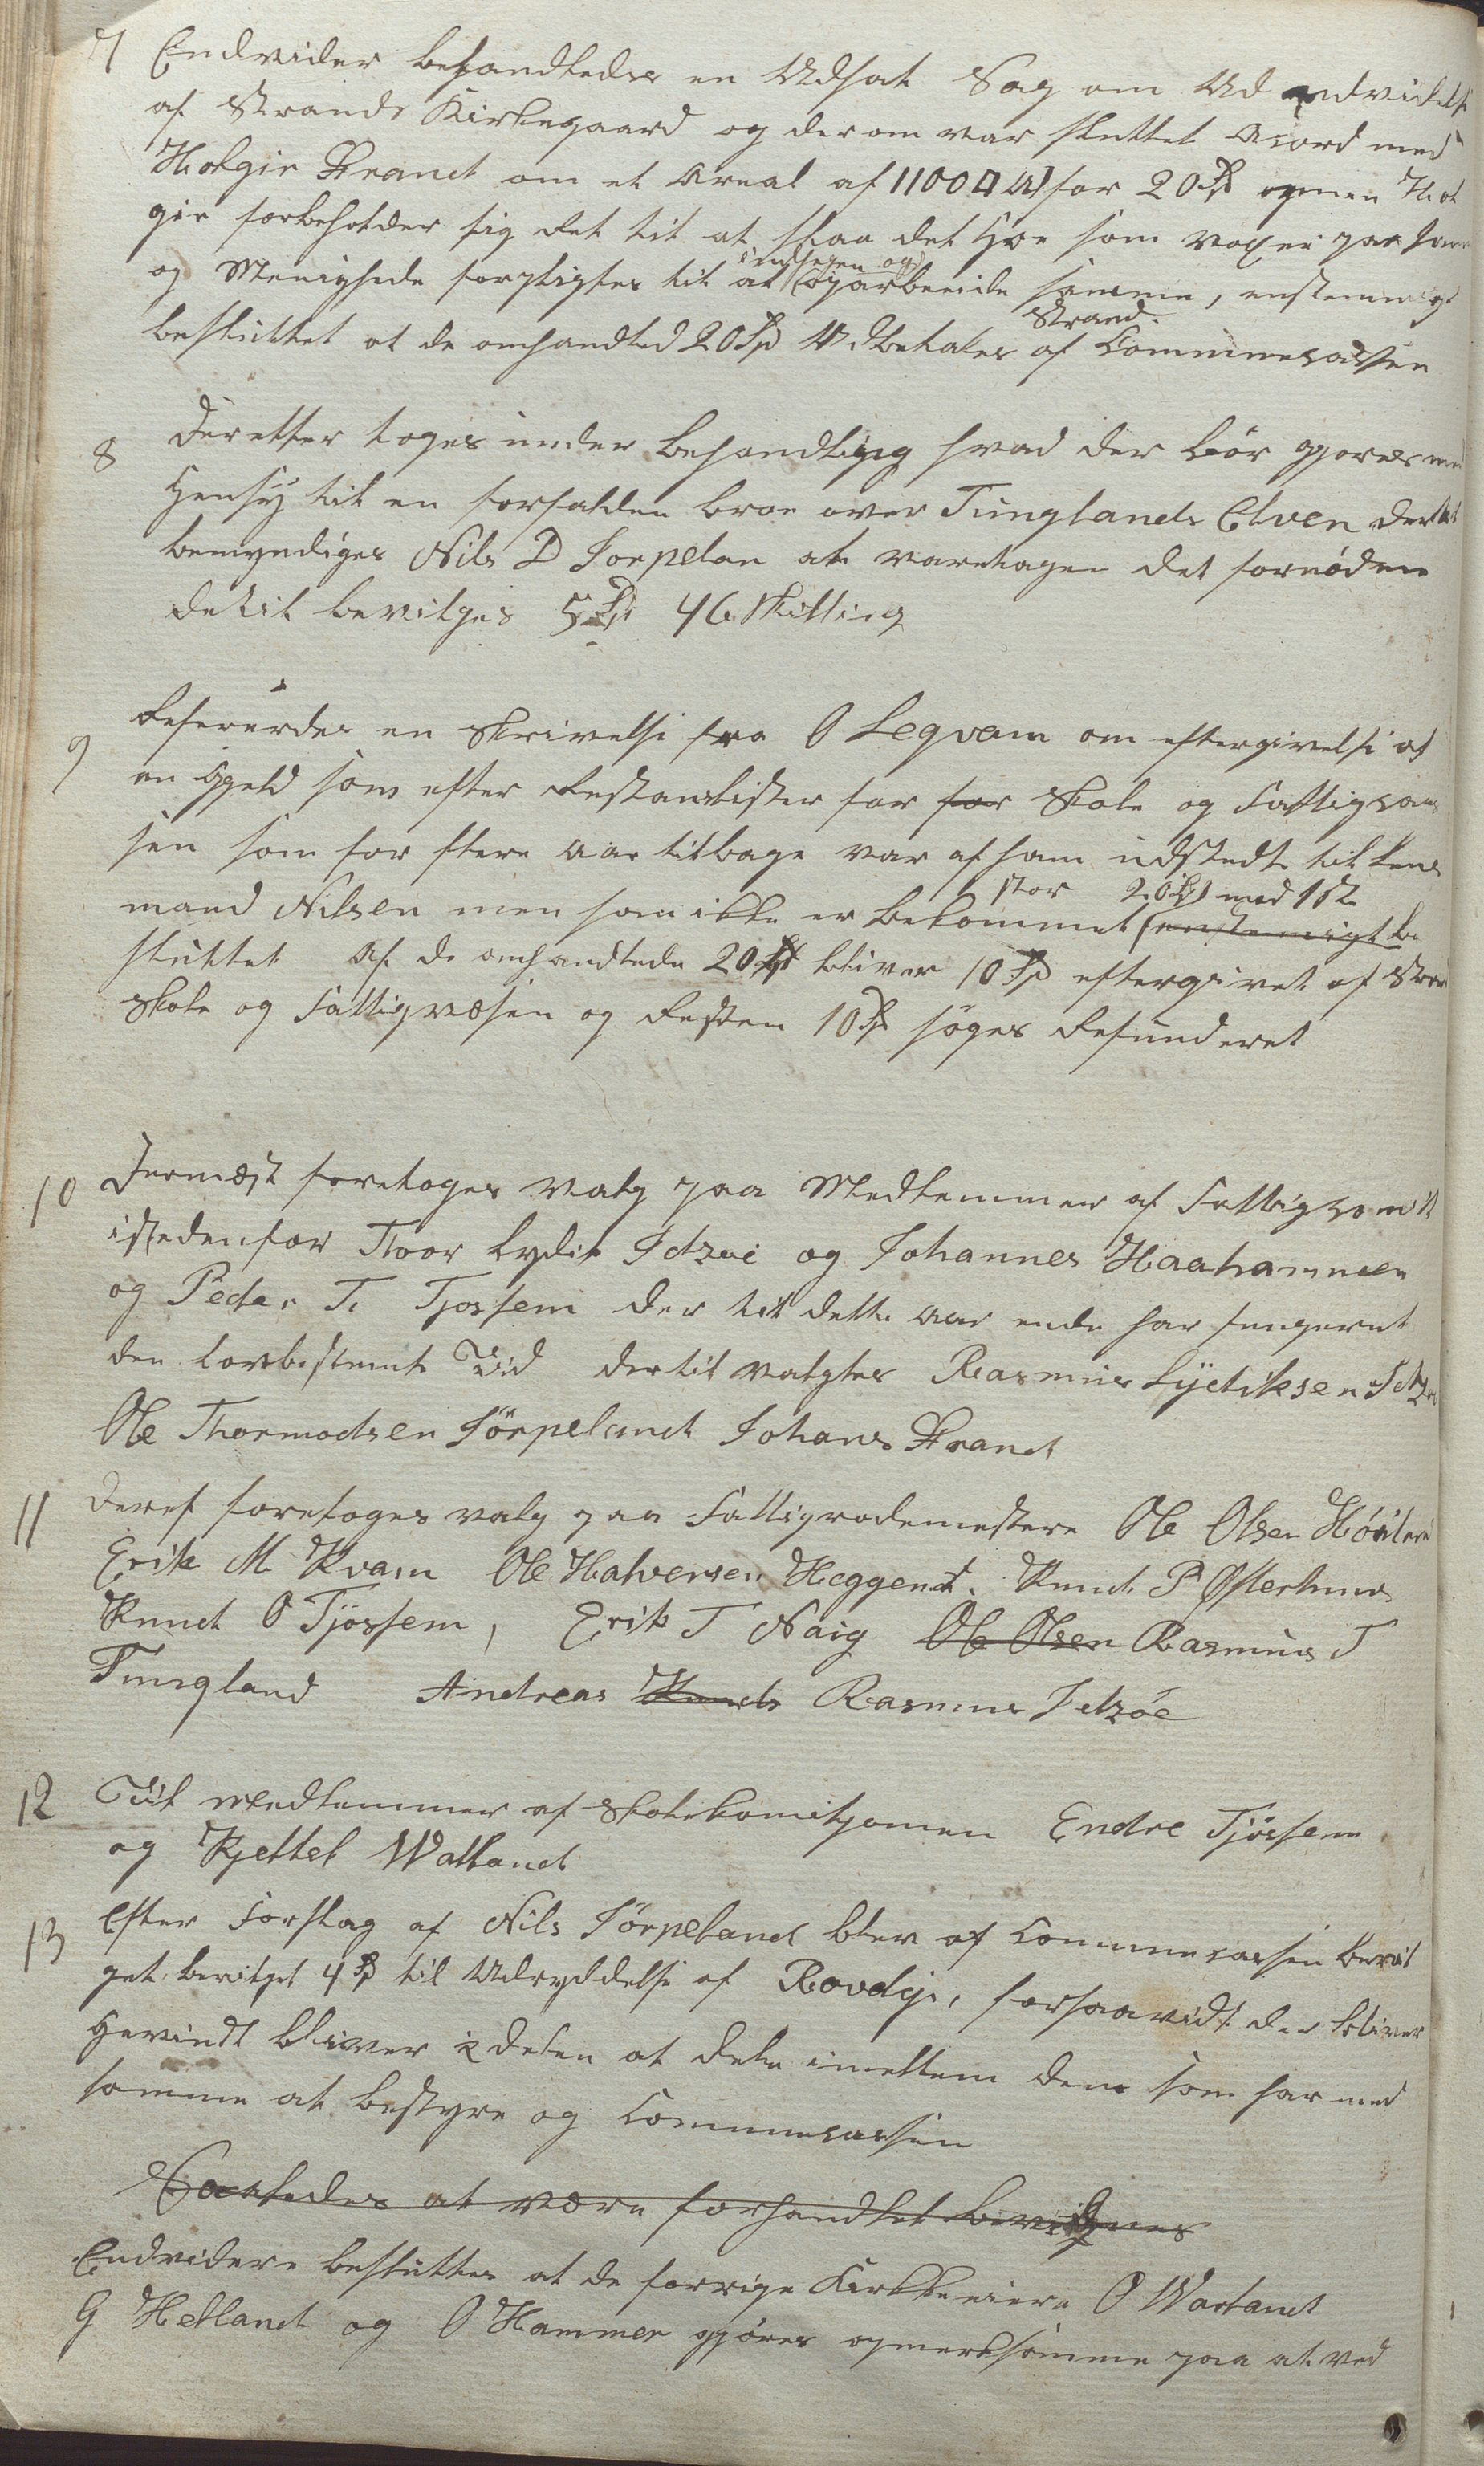 7 Endvider behandledes en Udsat Sag om Ud endvidelse
af Strands Kirkegaard og derom var sluttet Acord med
Holgir Strand om et Areal af 1100 □ Al for 20 Spd ogmen Hol
gir forbeholder sig Ret til at slaa det Høe som voxer paa Jorden
og Menighede forpligtes til at (indhegne og) oparbeeide samme, enstemmigt
besluttet at de omhandled 20 Spd Udbetales af Strand Communecassen
8 Deretter toges under Behandling hvad der bør gjøres med
Hensy til en forfalden broe over Tunglands Elven dertil
bemyndiges Nils D Jorpelan at varetagen det fornødne
dertil bevilges 5 Spd 46 Skilling
9 Refererdes en Skrivelse fra O Legvam om eftergivelse af
en Gjeld som efter Restanslister for for Skole og Fattigvæs
sen som for flere Aar tilbage var af ham udstedt til Lens
mand Nilsen men som ikke er bekommet stor 20 Spd mod 1 St enstemigt be
sluttet Af de omhandlede 20 Spd bliver 10 Spd eftergivet af Stran
Skole og Fattigvæsen og Resten 10 Spd søges Refunderet
10 Dernæst foretoges Valg paa Medlemmer af Fattigkomit
istedenfor Thor Lydik Idzøe og Johannes Haahammer
og Peder T. Tjossem der til dette Aar ende har fungeret
den lovbestemt Tid dertil valgtes Rasmus Lydiksen Idzø
Ole Thormodsen Jørpeland Johans Strand
11 Deref foretoges valg paa Fattigrodemestere Ole Olsen Høile
Erik M Kvam Ole Halversen Heggend. Knud P Østerhus
Knud O Tjøssem, Erik T Naig Ole Olsen Rasmus T
Tungland Andreas Knuds Rasmus Idzöe
12 Til Medlemmer af Skolekomitjonen Endre Tjössem
og Kjettel Watland
13 Efter Forslag af Nils Jörpeland blev af Communecassen bevil
get bevilget 4 Spd til Udryddelse af Rovdyr, forsaavidt der bliver
Gevindt bliver den at dele imellem dem som har med
samme at bestyre og Communecassen
Saaledes at være forhandlet bevidnes
Endvidere besluttes at de forrige Kirkkeeiere O Watland
G Helland og O Hammer gjøres opmerksomme paa at ved